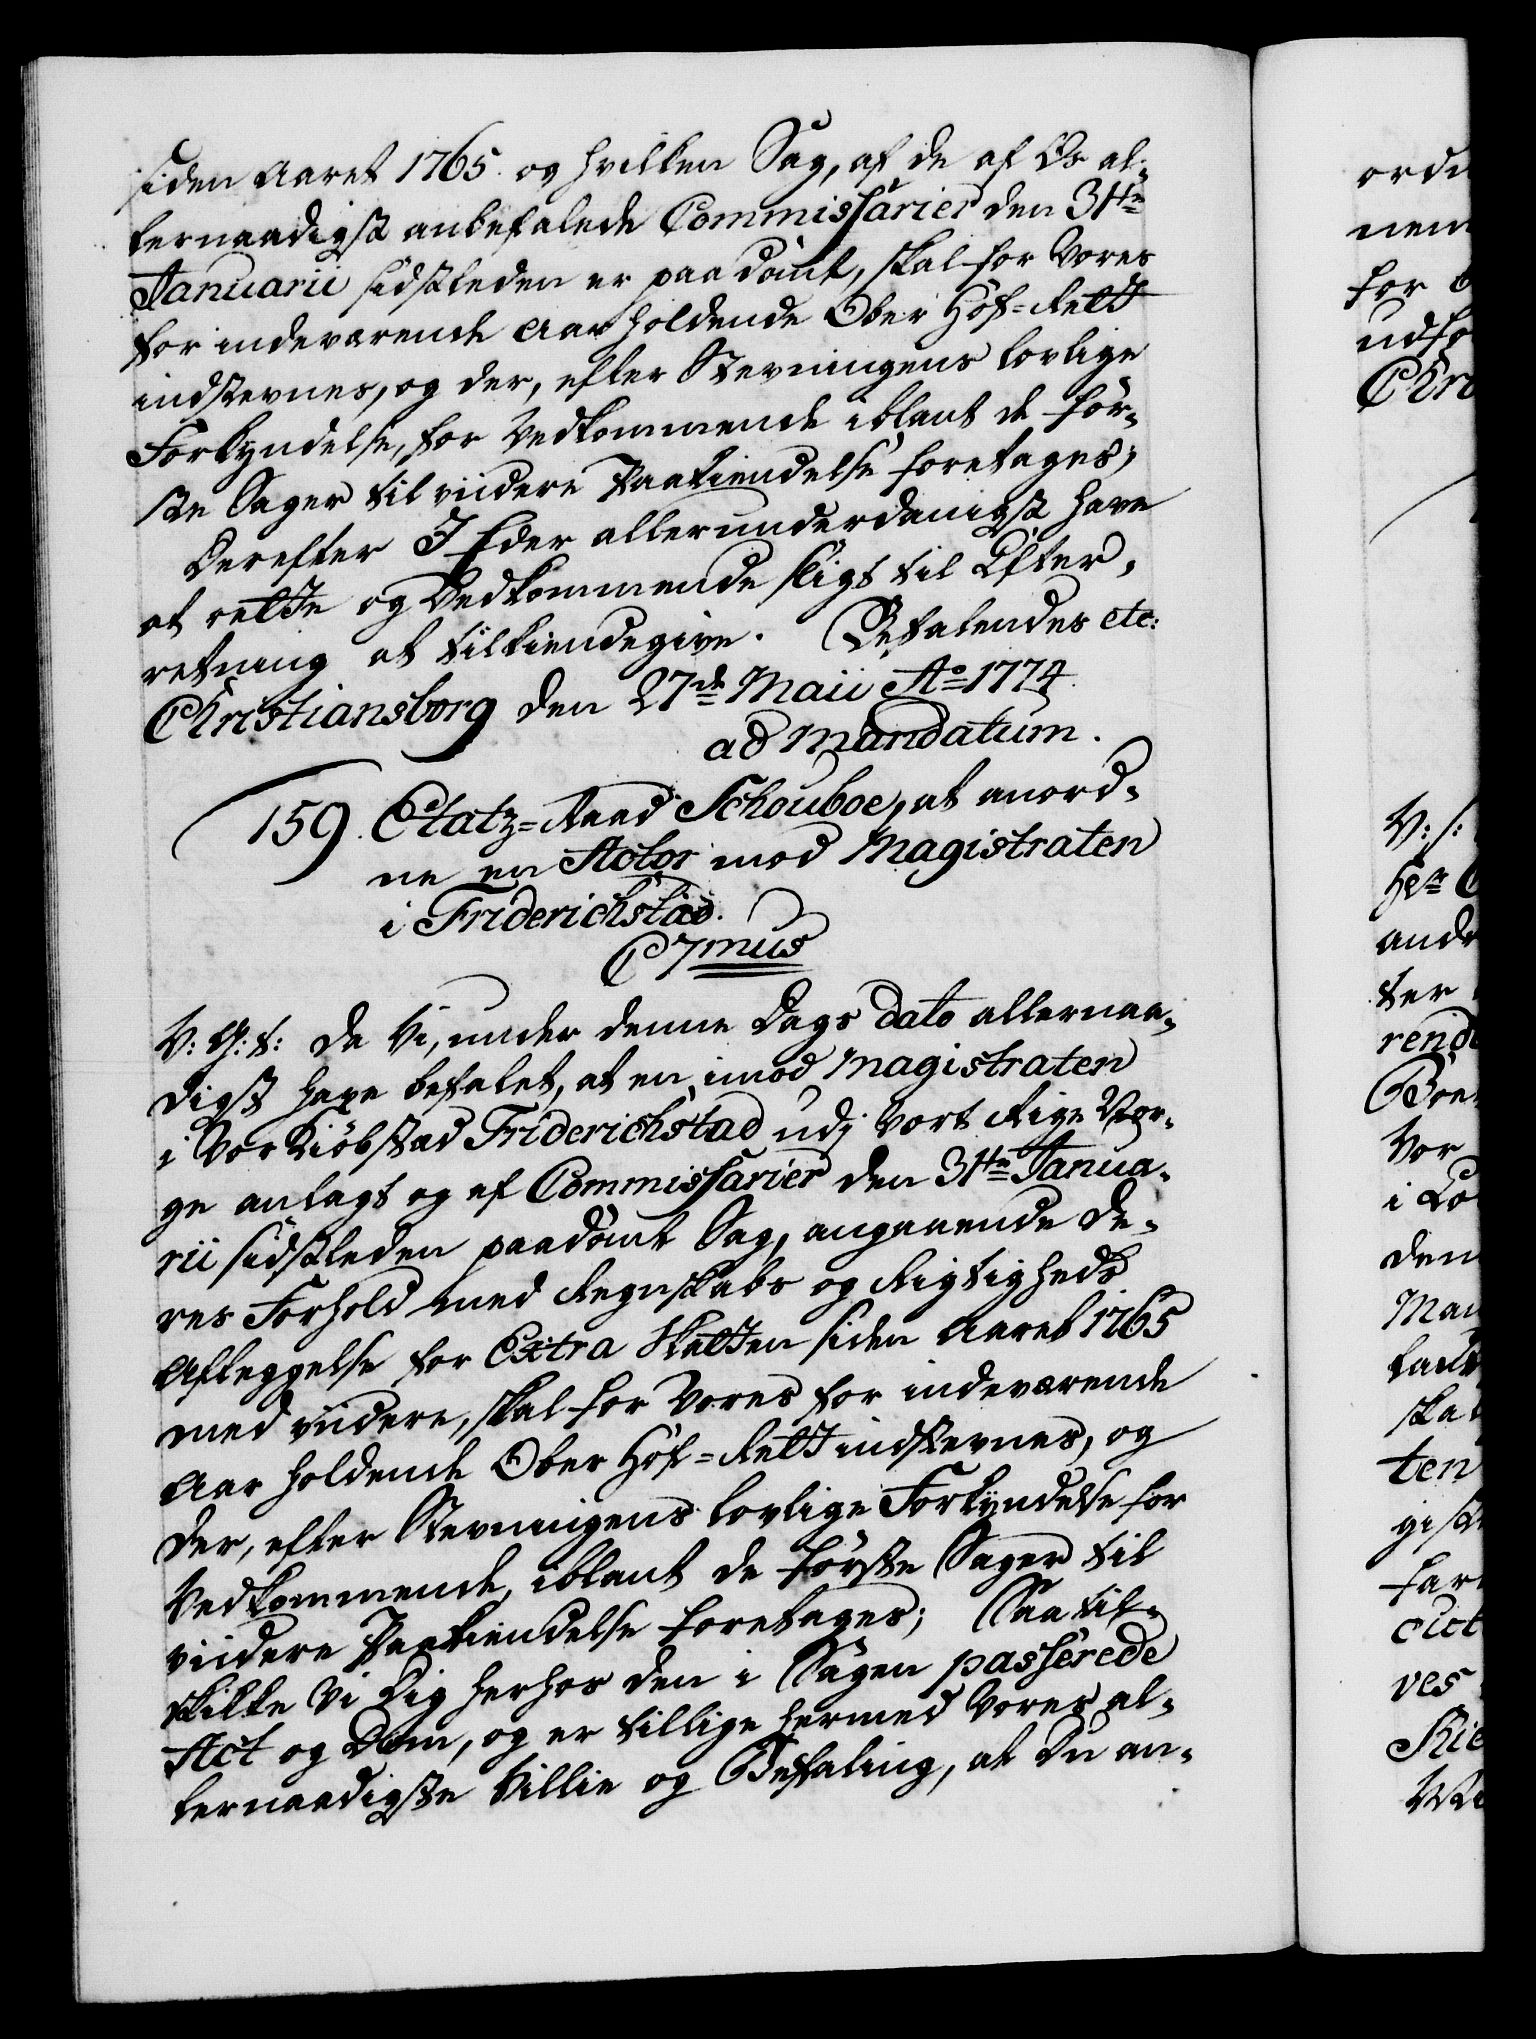 siden Aaret 1765. og hvilken Sag, af de af Os al-
lernaadigst anbefalede Commissarier den 31te
Januarii sidstleden er paadömt, skal for Vores
for indeværende Aar holdende Ober Hof-Rett
indstevnes, og der, efter Stevningens lovlige
Forkyndelse, for Vedkommende iblant de för-
ste Sager til viidere Paakiendelse foretages;
Derefter I Eder allerunderdanigst have
at rette og Vedkommende sligt til Efter-
retning at tilkiendegive. Befalendes etc:
Christiansborg den 27de Maii Ao 1774.
ad Mandatum.
159. Etatz-Raad Schouboe, at anord-
ne en Actor mod Magistraten
i Friderichstad.
C 7mus
V: G: T: Da Vi, under denne Dags dato allernaa-
digst have befalet, at en, imod Magistraten
i Vor Kiöbstad Friderichstad udj Vort Rige Nor-
ge anlagt og af Commissarier den 31te Janua-
rii sidstleden paadömt Sag, angaaende De-
res Forhold med Regnskabs og Rigtigheds
Aflæggelse for Extra Skatten siden Aaret 1765
med viidere, skal for Vores for indeværende
Aar holdende Ober Hof-Rett indstevnes, og
der, efter Stevningens lovlige Forkyndelse for
Vedkommende, iblant de förste Sager til
viidere Paakiendelse foretages; Saa til-
skikke Vi Dig herhos den i Sagen passerede
Act og Dom, og er tillige hermed Vores al-
lernaadigste Villie og Befaling, at Du an-